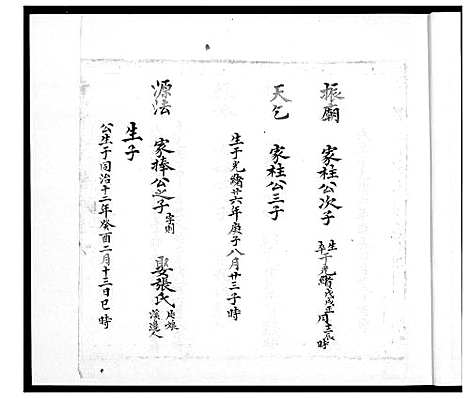 振廟 家柱公次子 生 卒于光緒戊戌正月十三戌時
天乞 家柱公三子
生于光緒廿六年庚子八月廿三子時
源法 家捧公之子 字 娶張氏 娘 溪邊人
生子
公生于同治十二年癸酉二月十三日巳時